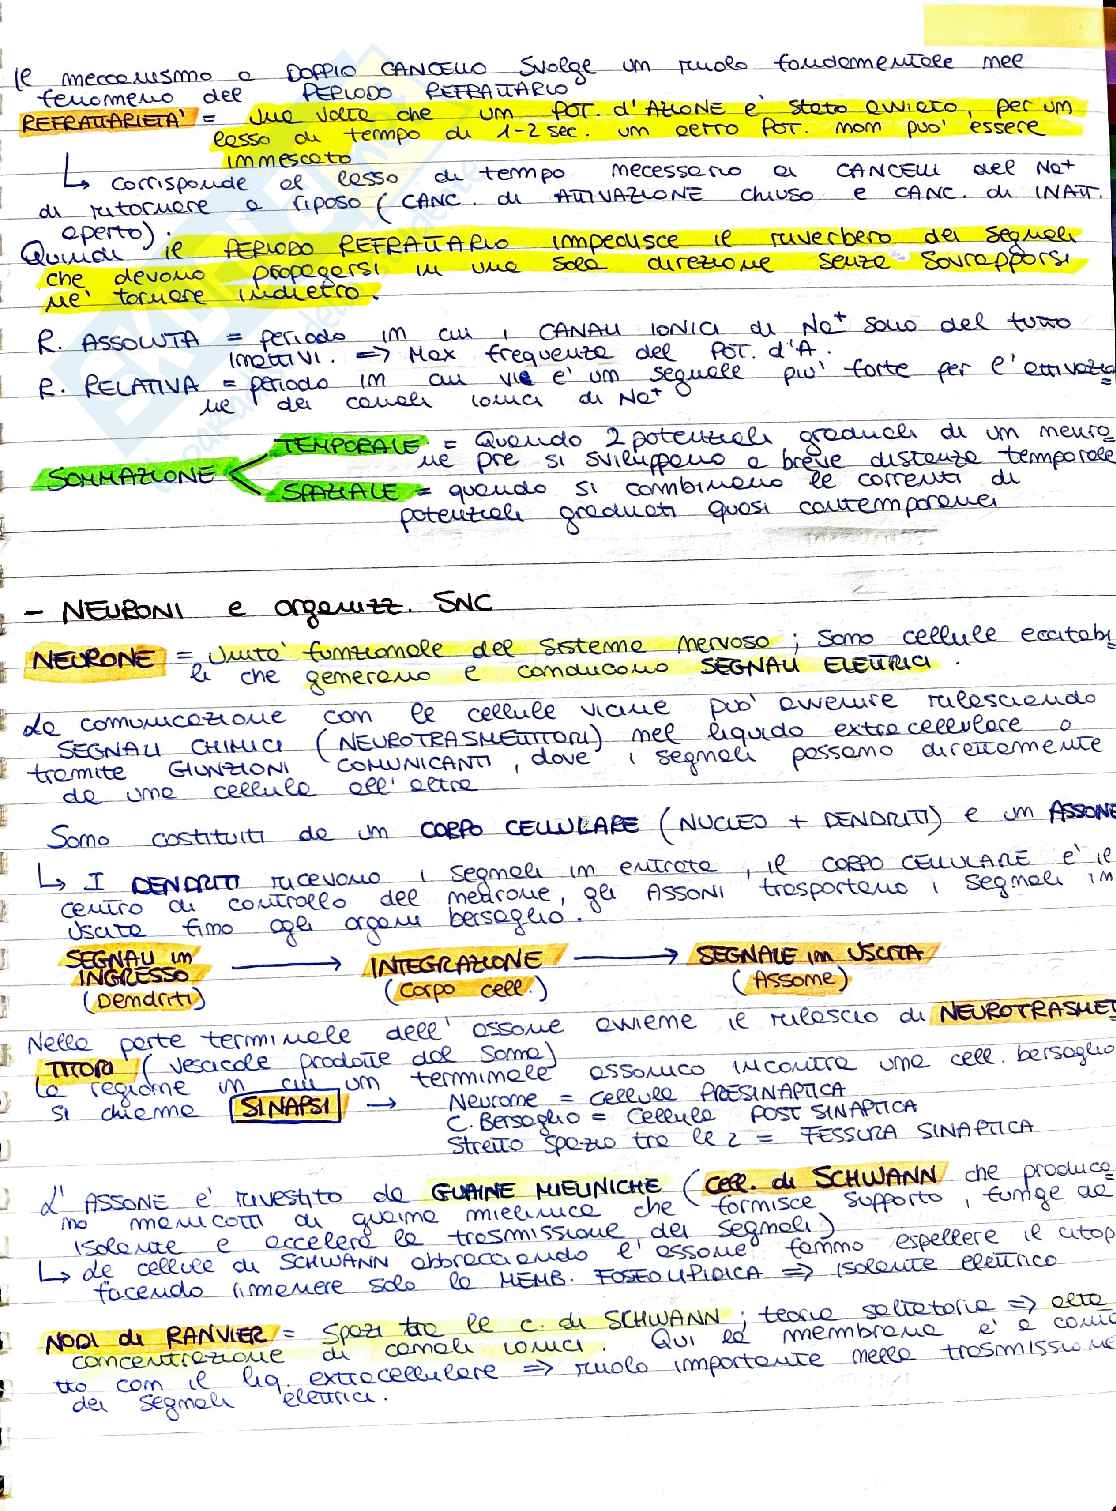 Il meccanismo a DOPPIO CANCELLO svolge un ruolo fondamentale nel
fenomeno del PERIODO REFRATTARIO
REFRATTARIETA' = Una volta che un POT. d'AZIONE e' stato avviato, per un
lasso di tempo di 1-2 sec. un altro POT. non puo' essere
innescato
↳ corrisponde al lasso di tempo necessario ai CANCELLI del Na+
di ritornare a riposo (CANC. di ATTIVAZIONE chiuso e CANC. di INATT.
aperto).
Quindi il PERIODO REFRATTARIO impedisce il riverbero dei segnali
che devono propagarsi in una sola direzione senza sovrapporsi
ne' tornare indietro.
R. ASSOLUTA = periodo in cui i CANALI IONICI di Na+ sono del tutto
inattivi. => Max frequenza del POT. d'A.
R. RELATIVA = periodo in cui vi e' un segnale piu' forte per l'attivazio
ne dei canali ionici di Na+
SOMMAZIONE
TEMPORALE = Quando 2 potenziali graduali di un neuro
ne pre si sviluppano a breve distanza temporale
SPAZIALE = quando si combinano le correnti di
potenziali graduati quasi contemporanei
- NEURONI e organizz. SNC
NEURONE = Unita' funzionale del sistema nervoso; sono cellule eccitabi
li che generano e conducono SEGNALI ELETTRICI.
La comunicazione con le cellule vicine puo' avvenire rilasciando
SEGNALI CHIMICI (NEUROTRASMETTITORI) nel liquido extracellulare o
tramite GIUNZIONI COMUNICANTI, dove i segnali passano direttamente
da una cellula all'altra
Sono costituiti da un CORPO CELLULARE (NUCLEO + DENDRITI) e un ASSONE
↳ I DENDRITI ricevono i segnali in entrata, il CORPO CELLULARE e' il
centro di controllo del neurone, gli ASSONI trasportano i segnali in
uscita fino agli organi bersaglio.
SEGNALI in INGRESSO (Dendriti) → INTEGRAZIONE (Corpo cell.) → SEGNALE in USCITA (Assone)
Nella parte terminale dell'assone avviene il rilascio di NEUROTRASMET
TITORI (vescicole prodotte dal soma)
La regione in cui un terminale assonico incontra una cell. bersaglio
si chiama SINAPSI → Neurone = Cellula PRESINAPTICA
C. Bersaglio = Cellula POST SINAPTICA
Stretto spazio tra le 2 = FESSURA SINAPTICA
L'ASSONE e' rivestito da GUAINE MIELINICHE (cell. di SCHWANN che produco
no manicotti di guaina mielinica che fornisce supporto, funge da
isolante e accelera la trasmissione dei segnali)
↳ Le cellule di SCHWANN abbracciando l'assone fanno espellere il citop
facendo rimanere solo la MEMB. FOSFOLIPIDICA => isolante elettrico
NODI di RANVIER = Spazi tra le c. di SCHWANN; teoria saltatoria => alta
concentrazione di canali ionici. Qui la membrana e' a conta
tto con il liq. extracellulare => ruolo importante nella trasmissione
dei segnali elettrici.